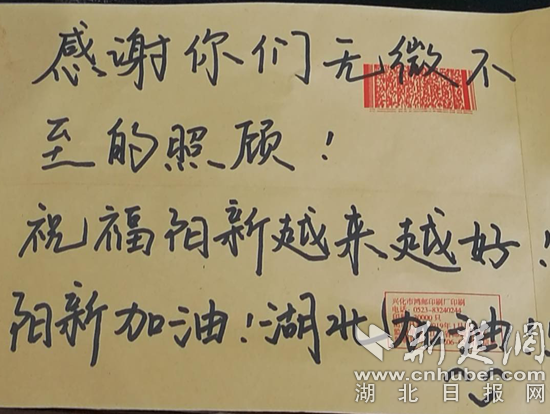 感谢你们无微不
至的照顾!
祝福阳新越来越好!
阳新加油!湖北加油!
兴化市鸿邮印刷厂印刷
电话:0523-83240244
新楚网
www.cnhubei.com
湖北日报网